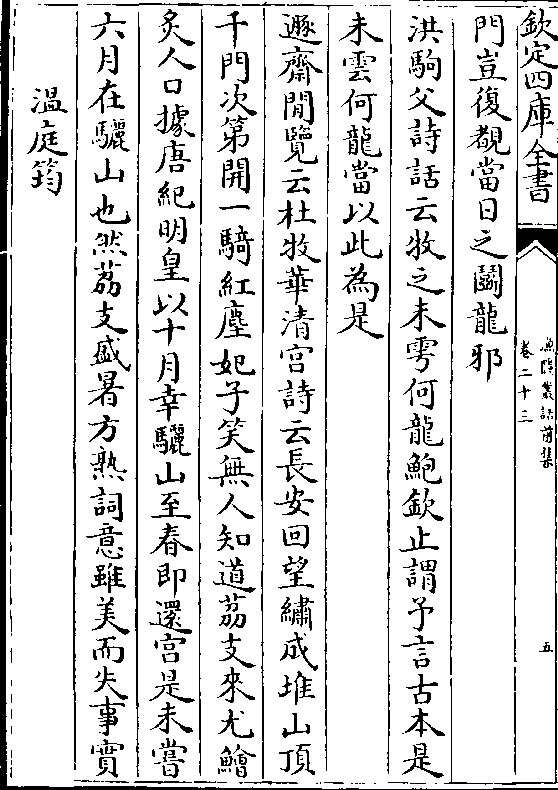 欽定四庫全書
漁隱叢話前集
卷二十三
五
門豈復覩當日之鬬龍邪
洪駒父詩話云牧之未雩何龍鮑欽止謂予言古本是
未雲何龍當以此為是
遯齋閒覽云杜牧華清宮詩云長安回望繡成堆山頂
千門次第開一騎紅塵妃子笑無人知道荔支來尤鱠
炙人口據唐紀明皇以十月幸驪山至春即還宮是未嘗
六月在驪山也然荔支盛暑方熟詞意雖美而失事實
溫庭筠